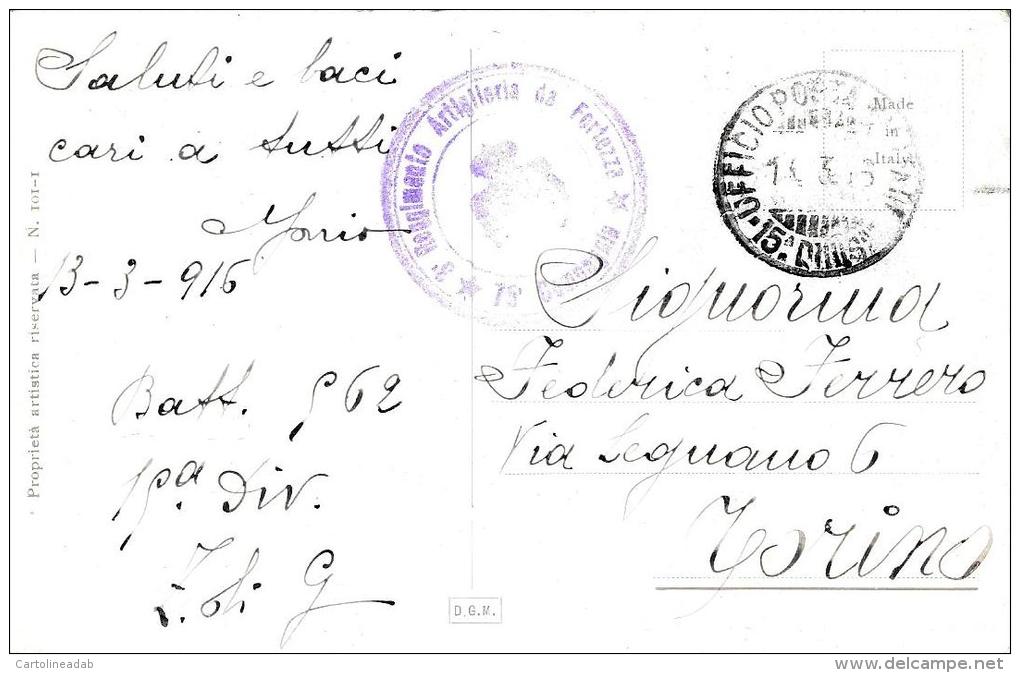 Saluti e baci
cari a tutti
13-3-916
Batt. 562
15ª Div.
Z. di G
Proprietà artistica riservata — N. 101-1
8° Reggimento Artiglieria da Fortezza ★
Made
in
Italy
UFFICIO POSTA
15ª
Signorina
Federica Ferrero
Via Legnano 6
Torino
D.G.M.
Cartolineadab
www.delcampe.net